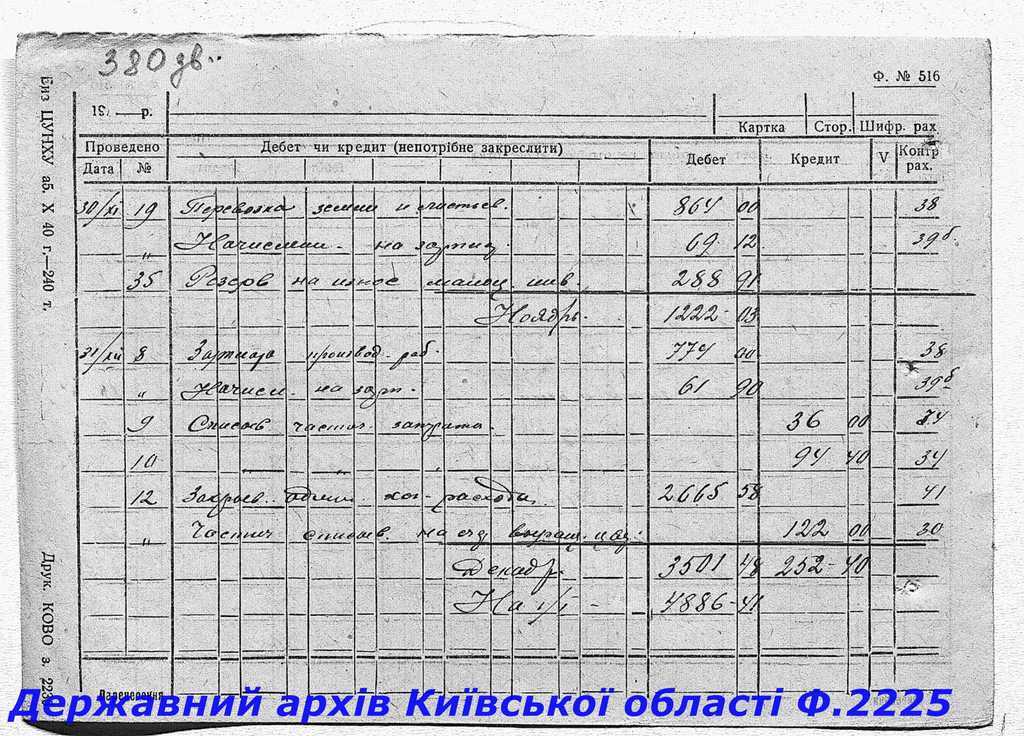 380 дв.
Ф. № 516
19 р.
Картка Стор. Шифр. рах.
Проведено Дебет чи кредит (непотрібне закреслити) Дебет Кредит V Контр рах.
Дата №
30/XI 19 Перевозка земли и листьев. 864 00 38
" Начислен. на зарпл. 69 12 39б.
35 Резерв на износ малоц. инв. 288 91
Ноябрь. 1222-03
31/XII 8 Зарплата производ. раб. 774 00 38
" Начисл. на зарп. 61 90 39б
9 Списыв частич. затрата. 36 00 34
10 " 94 40 34
12 Закрыв. общие хоз. расходы 2665 58 41
" Частич списыв. на сч. выращ. 122 00 30
Декабр. 3501 48 252-40
На 1/I - 4886-41
Биз ЦУНХУ аб. X 40 г.—240 т.
Друк. КОВО з. 223
Державний архів Київської області Ф.2225